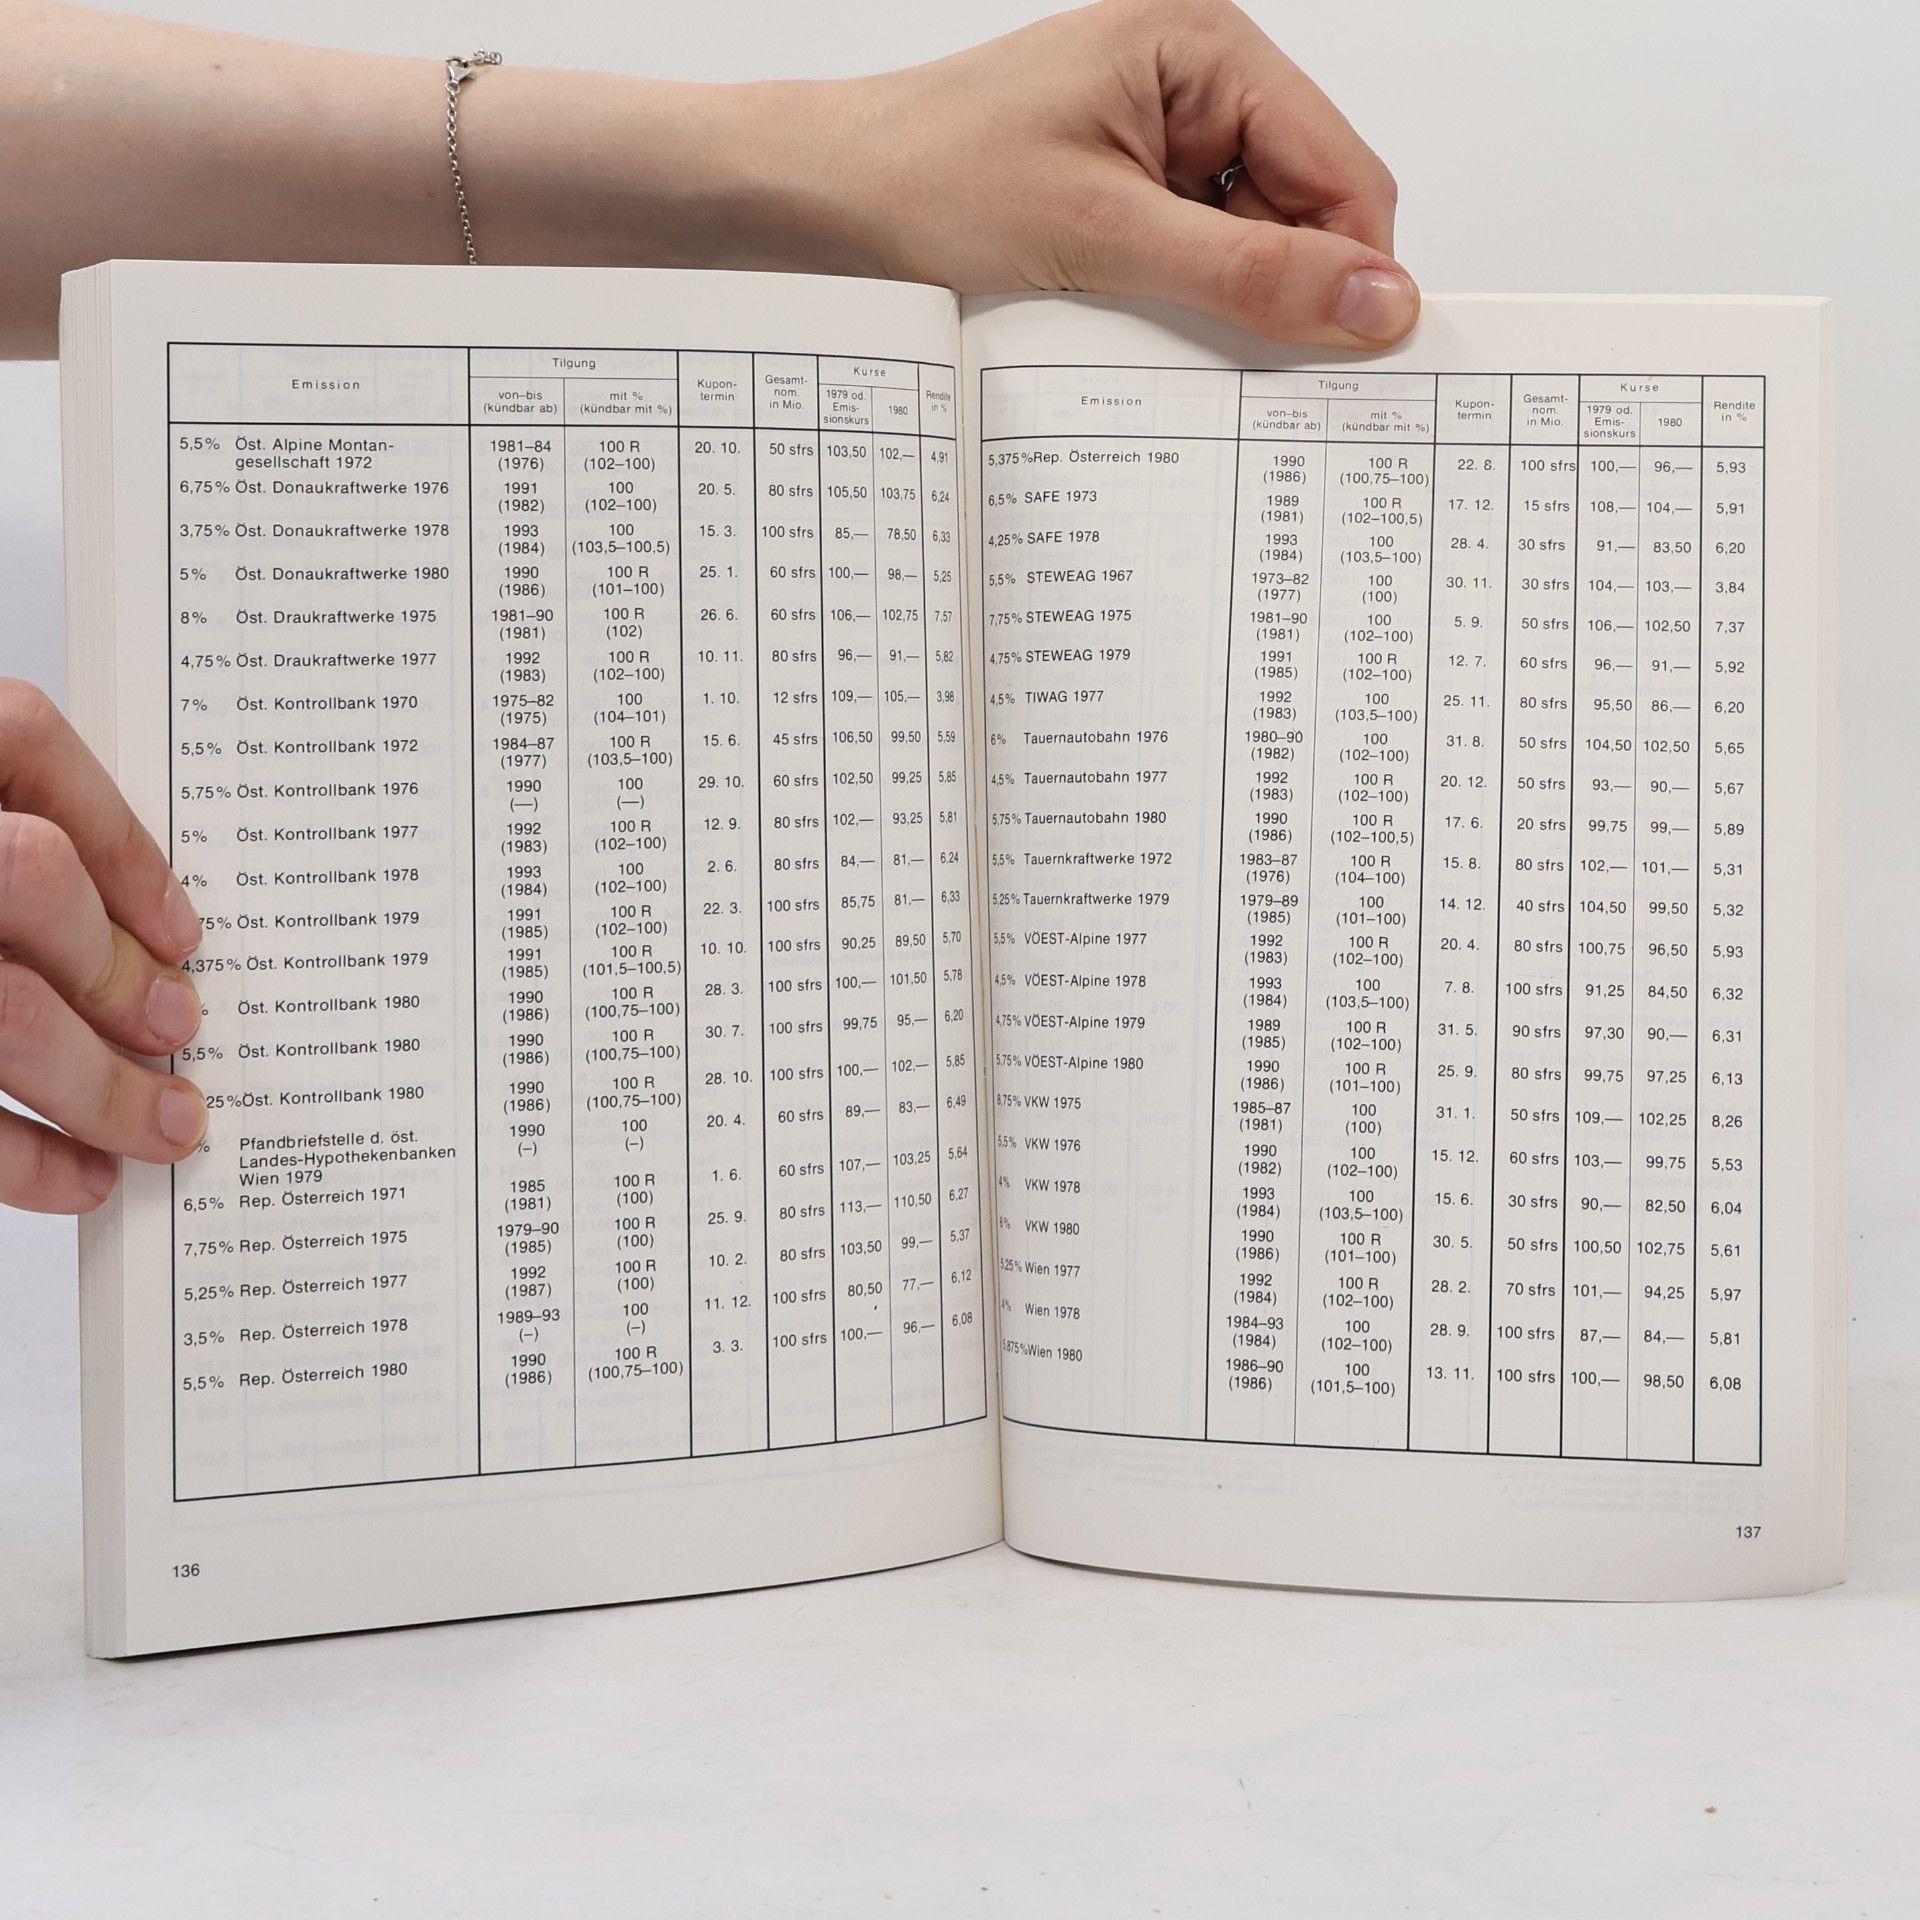 Emission Tilgung Kupon- termin Gesamt- nom. in Mio. Kurse Rendite in %
von–bis (kündbar ab) mit % (kündbar mit %) 1979 od. Emis- sionskurs 1980
5,5% Öst. Alpine Montan- 1981–84 100 R 20. 10. 50 sfrs 103,50 102,— 4,91
gesellschaft 1972 (1976) (102–100)
6,75% Öst. Donaukraftwerke 1976 1991 100 20. 5. 80 sfrs 105,50 103,75 6,24
(1982) (102–100)
3,75% Öst. Donaukraftwerke 1978 1993 100 15. 3. 100 sfrs 85,— 78,50 6,33
(1984) (103,5–100,5)
5% Öst. Donaukraftwerke 1980 1990 100 R 25. 1. 60 sfrs 100,— 98,— 5,25
(1986) (101–100)
8% Öst. Draukraftwerke 1975 1981–90 100 R 26. 6. 60 sfrs 106,— 102,75 7,57
(1981) (102)
4,75% Öst. Draukraftwerke 1977 1992 100 R 10. 11. 80 sfrs 96,— 91,— 5,82
(1983) (102–100)
7% Öst. Kontrollbank 1970 1975–82 100 1. 10. 12 sfrs 109,— 105,— 3,98
(1975) (104–101)
5,5% Öst. Kontrollbank 1972 1984–87 100 R 15. 6. 45 sfrs 106,50 99,50 5,59
(1977) (103,5–100)
5,75% Öst. Kontrollbank 1976 1990 100 29. 10. 60 sfrs 102,50 99,25 5,85
(—) (—)
5% Öst. Kontrollbank 1977 1992 100 R 12. 9. 80 sfrs 102,— 93,25 5,81
(1983) (102–100)
4% Öst. Kontrollbank 1978 1993 100 2. 6. 80 sfrs 84,— 81,— 6,24
(1984) (102–100)
75% Öst. Kontrollbank 1979 1991 100 R 22. 3. 100 sfrs 85,75 81,— 6,33
(1985) (102–100)
4,375% Öst. Kontrollbank 1979 1991 100 R 10. 10. 100 sfrs 90,25 89,50 5,70
(1985) (101,5–100,5)
% Öst. Kontrollbank 1980 1990 100 R 28. 3. 100 sfrs 100,— 101,50 5,78
(1986) (100,75–100)
5,5% Öst. Kontrollbank 1980 1990 100 R 30. 7. 100 sfrs 99,75 95,— 6,20
(1986) (100,75–100)
25% Öst. Kontrollbank 1980 1990 100 R 28. 10. 100 sfrs 100,— 102,— 5,85
(1986) (100,75–100)
% Pfandbriefstelle d. öst. 1990 100 20. 4. 60 sfrs 89,— 83,— 6,49
Landes-Hypothekenbanken (–) (–)
Wien 1979
6,5% Rep. Österreich 1971 1985 100 R 1. 6. 60 sfrs 107,— 103,25 5,64
(1981) (100)
7,75% Rep. Österreich 1975 1979–90 100 R 25. 9. 80 sfrs 113,— 110,50 6,27
(1985) (100)
5,25% Rep. Österreich 1977 1992 100 R 10. 2. 80 sfrs 103,50 99,— 5,37
(1987) (100)
3,5% Rep. Österreich 1978 1989–93 100 11. 12. 100 sfrs 80,50 77,— 6,12
(–) (–)
5,5% Rep. Österreich 1980 1990 100 R 3. 3. 100 sfrs 100,— 96,— 6,08
(1986) (100,75–100)
136
Emission Tilgung Kupon- termin Gesamt- nom. in Mio. Kurse Rendite in %
von–bis (kündbar ab) mit % (kündbar mit %) 1979 od. Emis- sionskurs 1980
5,375% Rep. Österreich 1980 1990 100 R 22. 8. 100 sfrs 100,— 96,— 5,93
(1986) (100,75–100)
6,5% SAFE 1973 1989 100 R 17. 12. 15 sfrs 108,— 104,— 5,91
(1981) (102–100,5)
4,25% SAFE 1978 1993 100 28. 4. 30 sfrs 91,— 83,50 6,20
(1984) (103,5–100)
5,5% STEWEAG 1967 1973–82 100 30. 11. 30 sfrs 104,— 103,— 3,84
(1977) (100)
7,75% STEWEAG 1975 1981–90 100 5. 9. 50 sfrs 106,— 102,50 7,37
(1981) (102–100)
4,75% STEWEAG 1979 1991 100 R 12. 7. 60 sfrs 96,— 91,— 5,92
(1985) (102–100)
4,5% TIWAG 1977 1992 100 25. 11. 80 sfrs 95,50 86,— 6,20
(1983) (103,5–100)
6% Tauernautobahn 1976 1980–90 100 31. 8. 50 sfrs 104,50 102,50 5,65
(1982) (102–100)
4,5% Tauernautobahn 1977 1992 100 R 20. 12. 50 sfrs 93,— 90,— 5,67
(1983) (102–100)
5,75% Tauernautobahn 1980 1990 100 R 17. 6. 20 sfrs 99,75 99,— 5,89
(1986) (102–100,5)
5,5% Tauernkraftwerke 1972 1983–87 100 R 15. 8. 80 sfrs 102,— 101,— 5,31
(1976) (104–100)
5,25% Tauernkraftwerke 1979 1979–89 100 14. 12. 40 sfrs 104,50 99,50 5,32
(1985) (101–100)
5,5% VÖEST-Alpine 1977 1992 100 R 20. 4. 80 sfrs 100,75 96,50 5,93
(1983) (102–100)
4,5% VÖEST-Alpine 1978 1993 100 7. 8. 100 sfrs 91,25 84,50 6,32
(1984) (103,5–100)
4,75% VÖEST-Alpine 1979 1989 100 R 31. 5. 90 sfrs 97,30 90,— 6,31
(1985) (102–100)
5,75% VÖEST-Alpine 1980 1990 100 R 25. 9. 80 sfrs 99,75 97,25 6,13
(1986) (101–100)
8,75% VKW 1975 1985–87 100 31. 1. 50 sfrs 109,— 102,25 8,26
(1981) (100)
5,5% VKW 1976 1990 100 15. 12. 60 sfrs 103,— 99,75 5,53
(1982) (102–100)
4% VKW 1978 1993 100 15. 6. 30 sfrs 90,— 82,50 6,04
(1984) (103,5–100)
6% VKW 1980 1990 100 R 30. 5. 50 sfrs 100,50 102,75 5,61
(1986) (101–100)
5,25% Wien 1977 1992 100 R 28. 2. 70 sfrs 101,— 94,25 5,97
(1984) (102–100)
4% Wien 1978 1984–93 100 28. 9. 100 sfrs 87,— 84,— 5,81
(1984) (102–100)
5,875% Wien 1980 1986–90 100 13. 11. 100 sfrs 100,— 98,50 6,08
(1986) (101,5–100)
137